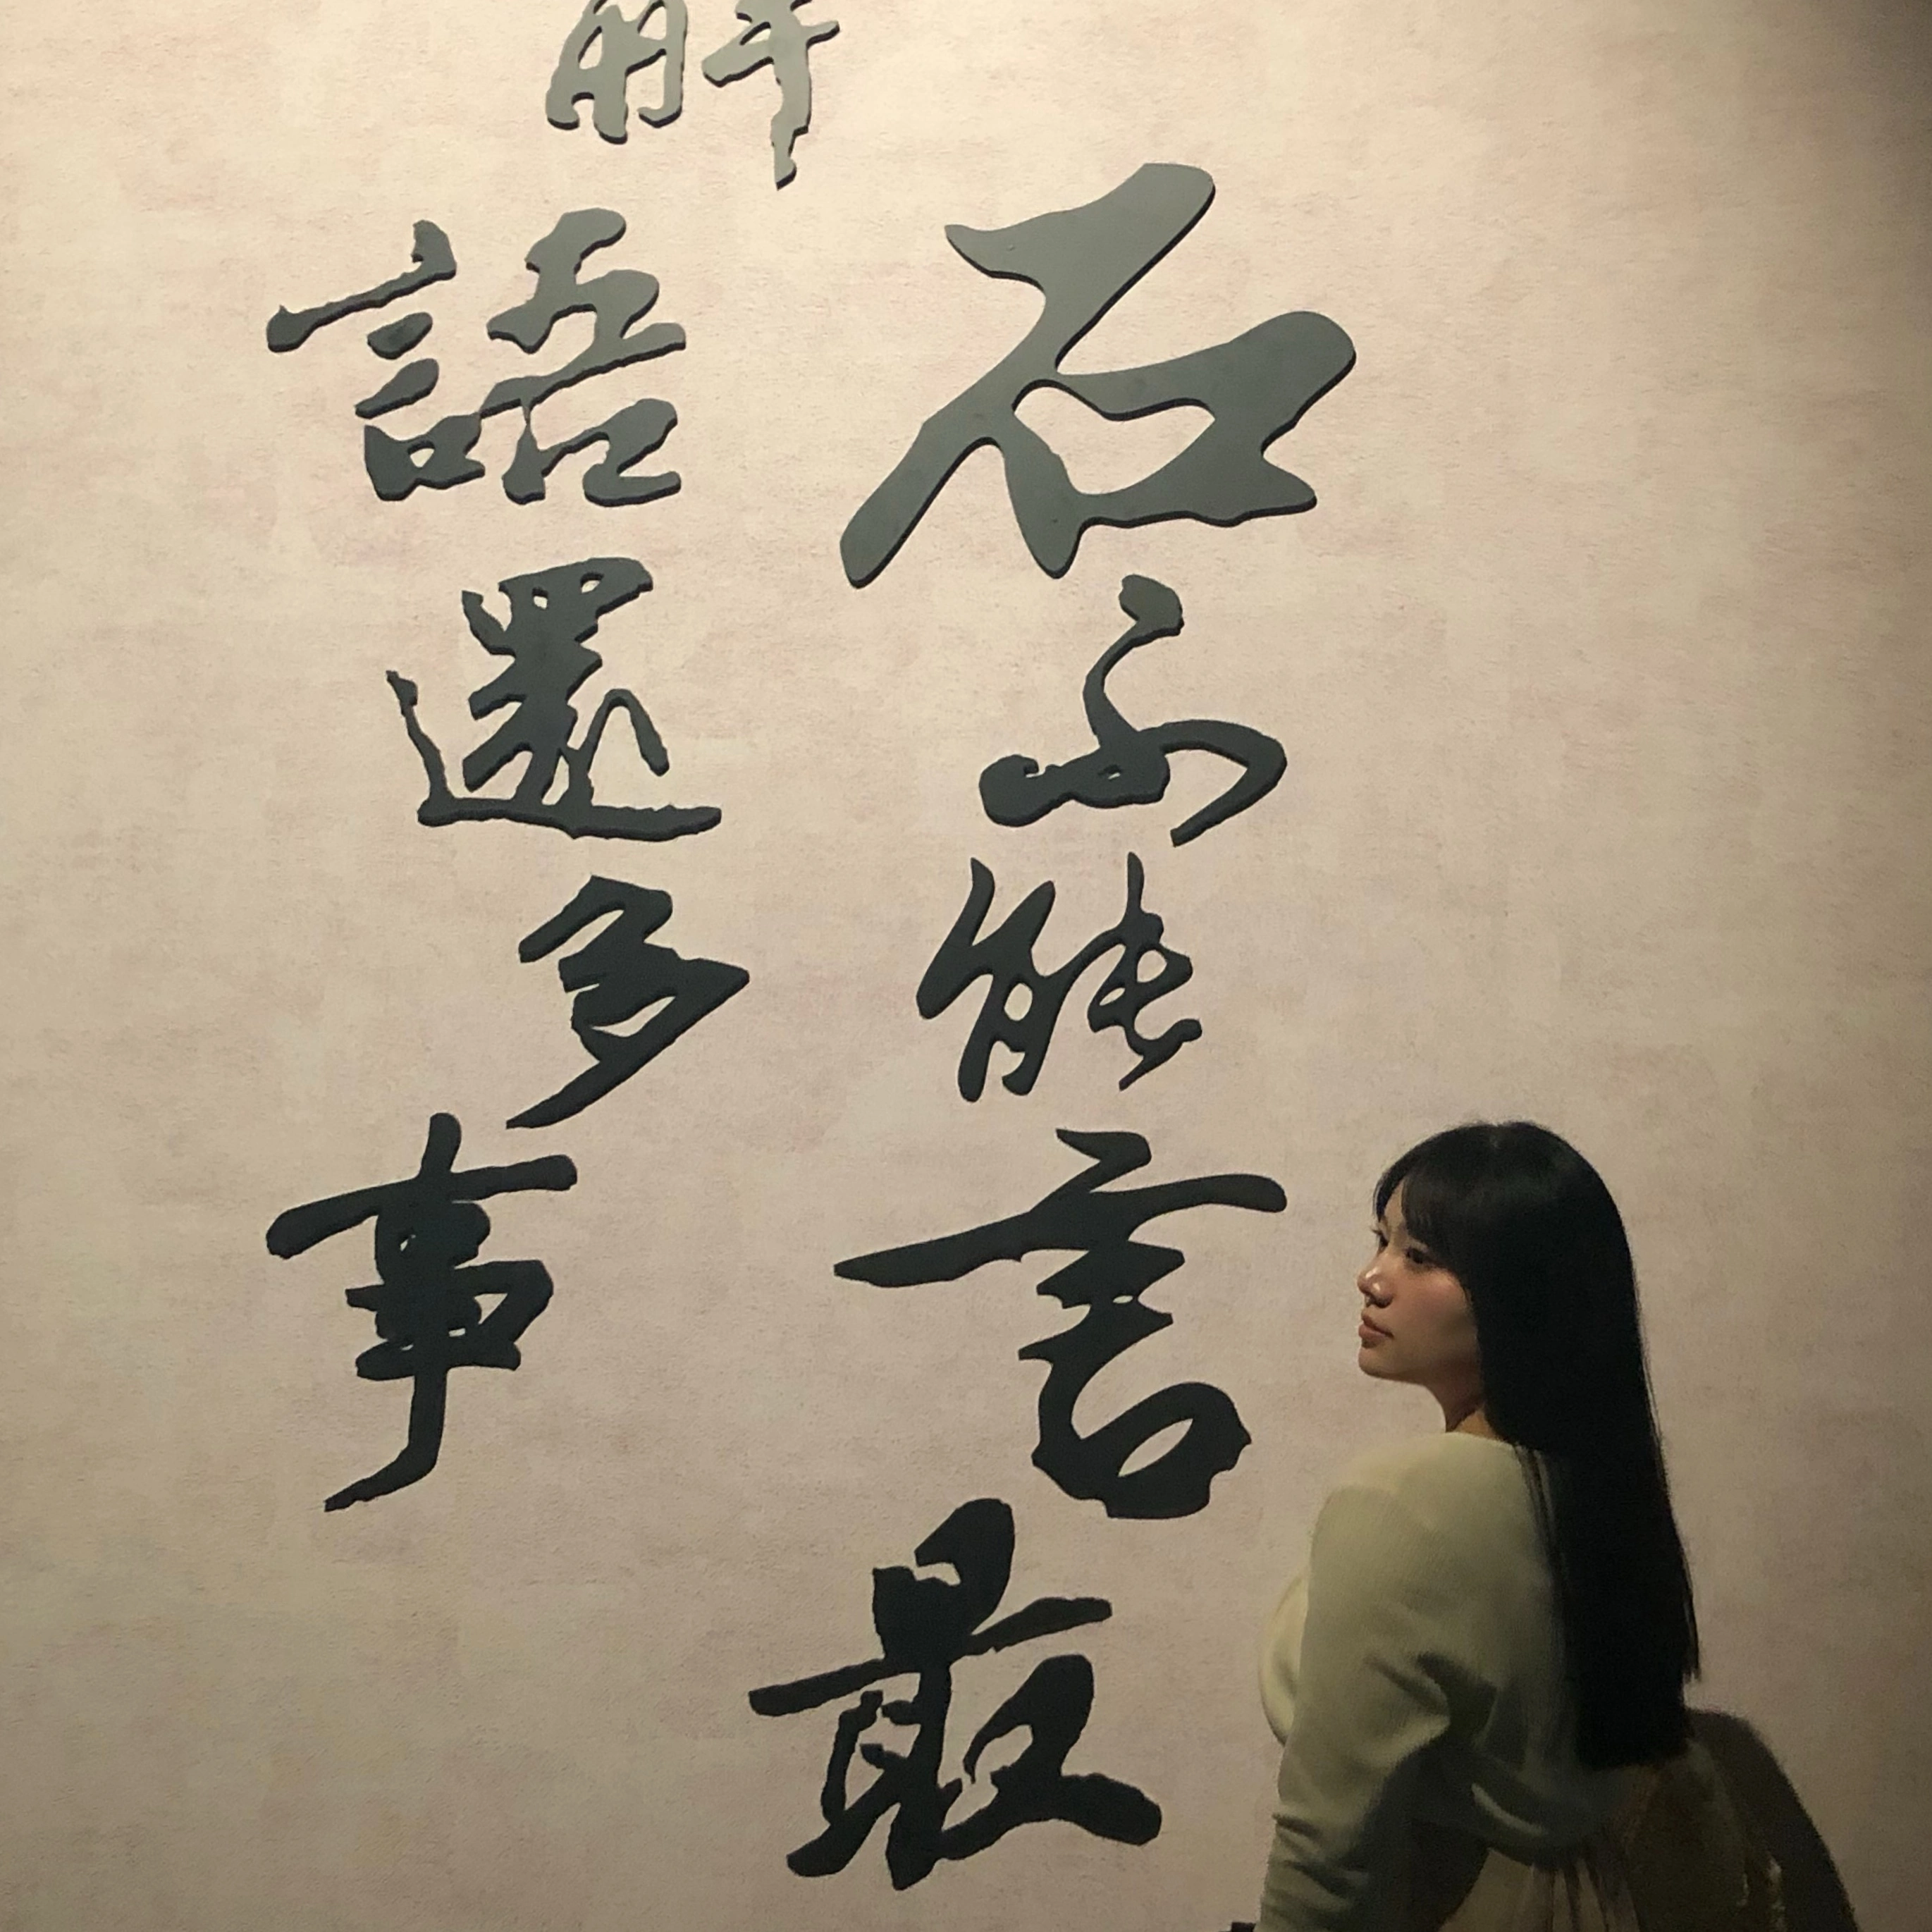 石不能言最
解語還多事